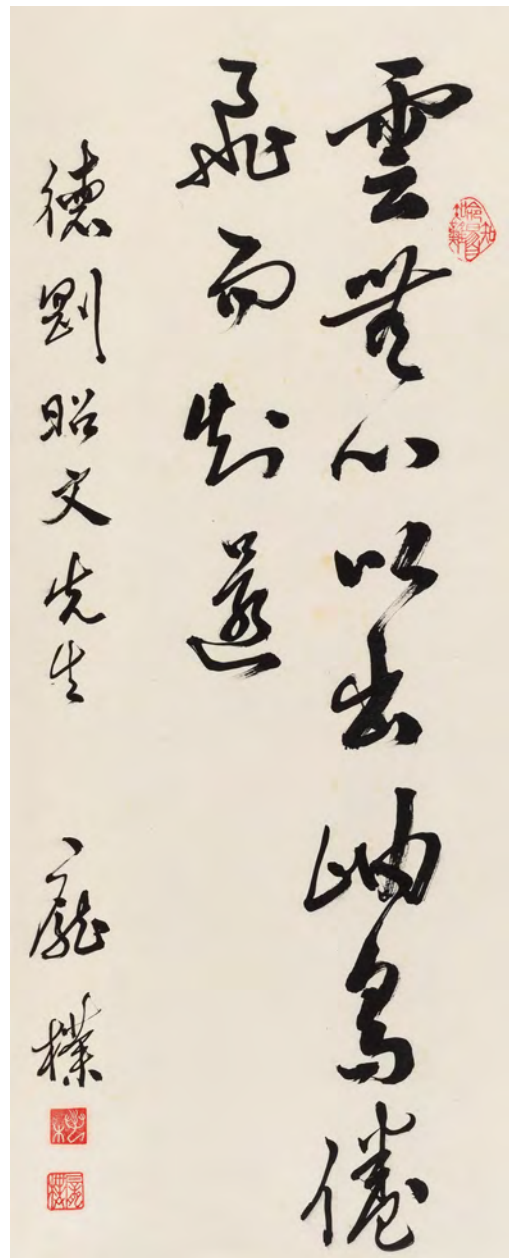 雲無心以出岫鳥倦
飛而知還
德剛昭文先生 龐樸